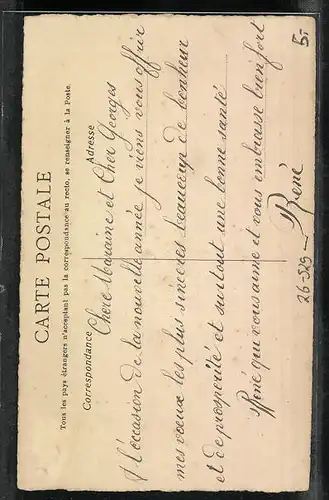 CARTE POSTALE
Tous les pays étrangers n'acceptant pas la correspondance au recto, se renseigner à la Poste.
Correspondance
Adresse
Chere Maraine et Cher Georges
A l'occasion de la nouvelle année je viens vous offrir
mes voeux les plus sinceres beaucoup de bonheur
et de prosperité et surtout une bonne santé
René qui vous aime et vous embrasse bien fort
René
26-529